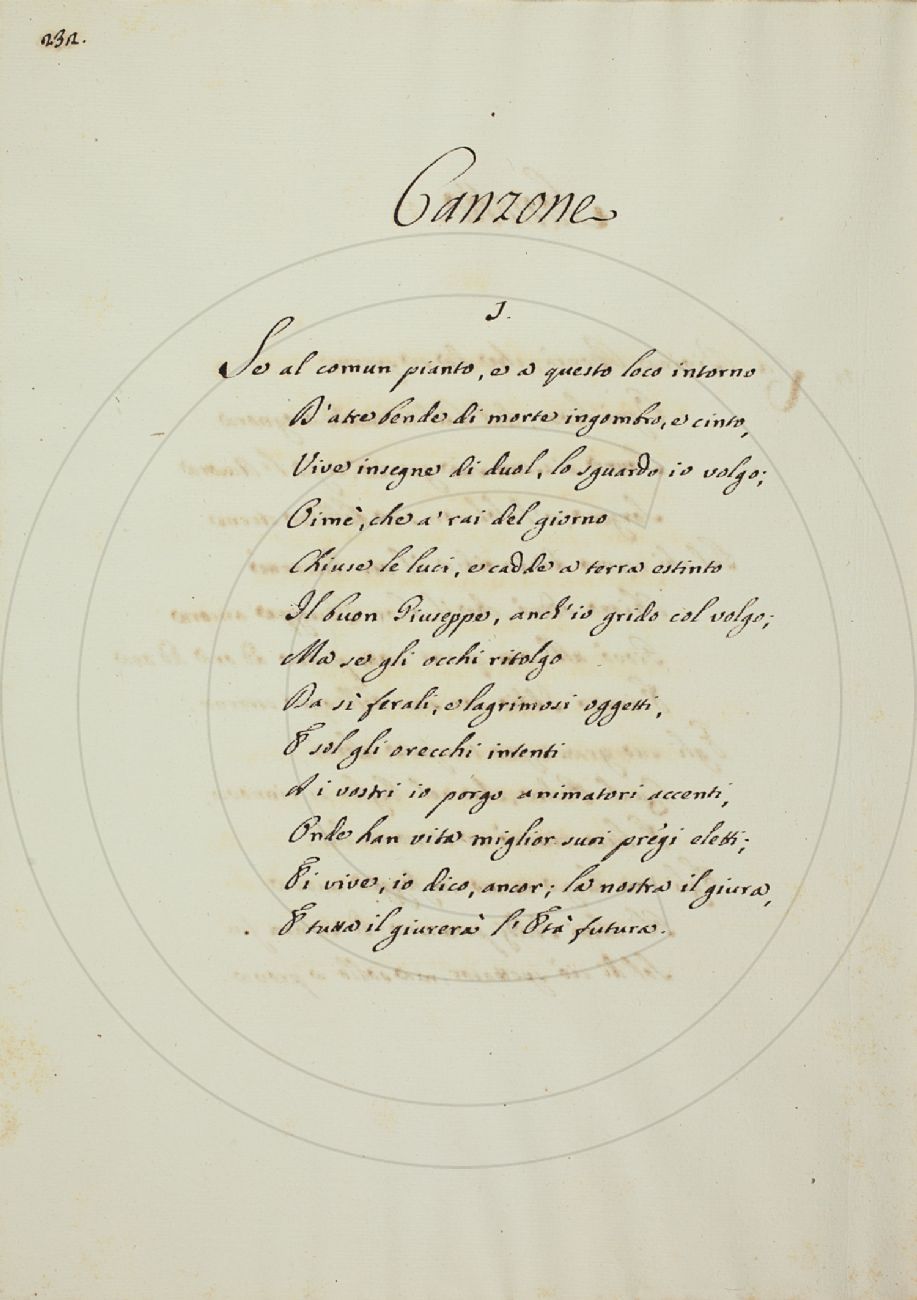 232.
Canzone
I.
Se al comun pianto, e a questo loco intorno
D'atre bende di morte ingombro, e cinto,
Vive insegne di duol, lo sguardo io volgo;
Oimè, che a' rai del giorno
Chiuse le luci, e cadde a terra estinto
Il buon Giuseppe, anch'io grido col volgo;
Ma se gli occhi ritolgo
Da sì ferali, e lagrimosi oggetti,
E sol gli orecchi intenti
A i vostri io porgo animatori accenti,
Onde han vita miglior suoi prègi eletti;
Ei vive, io dico, ancor; la nostra il giura,
E tutta il giurerà l'Età futura.